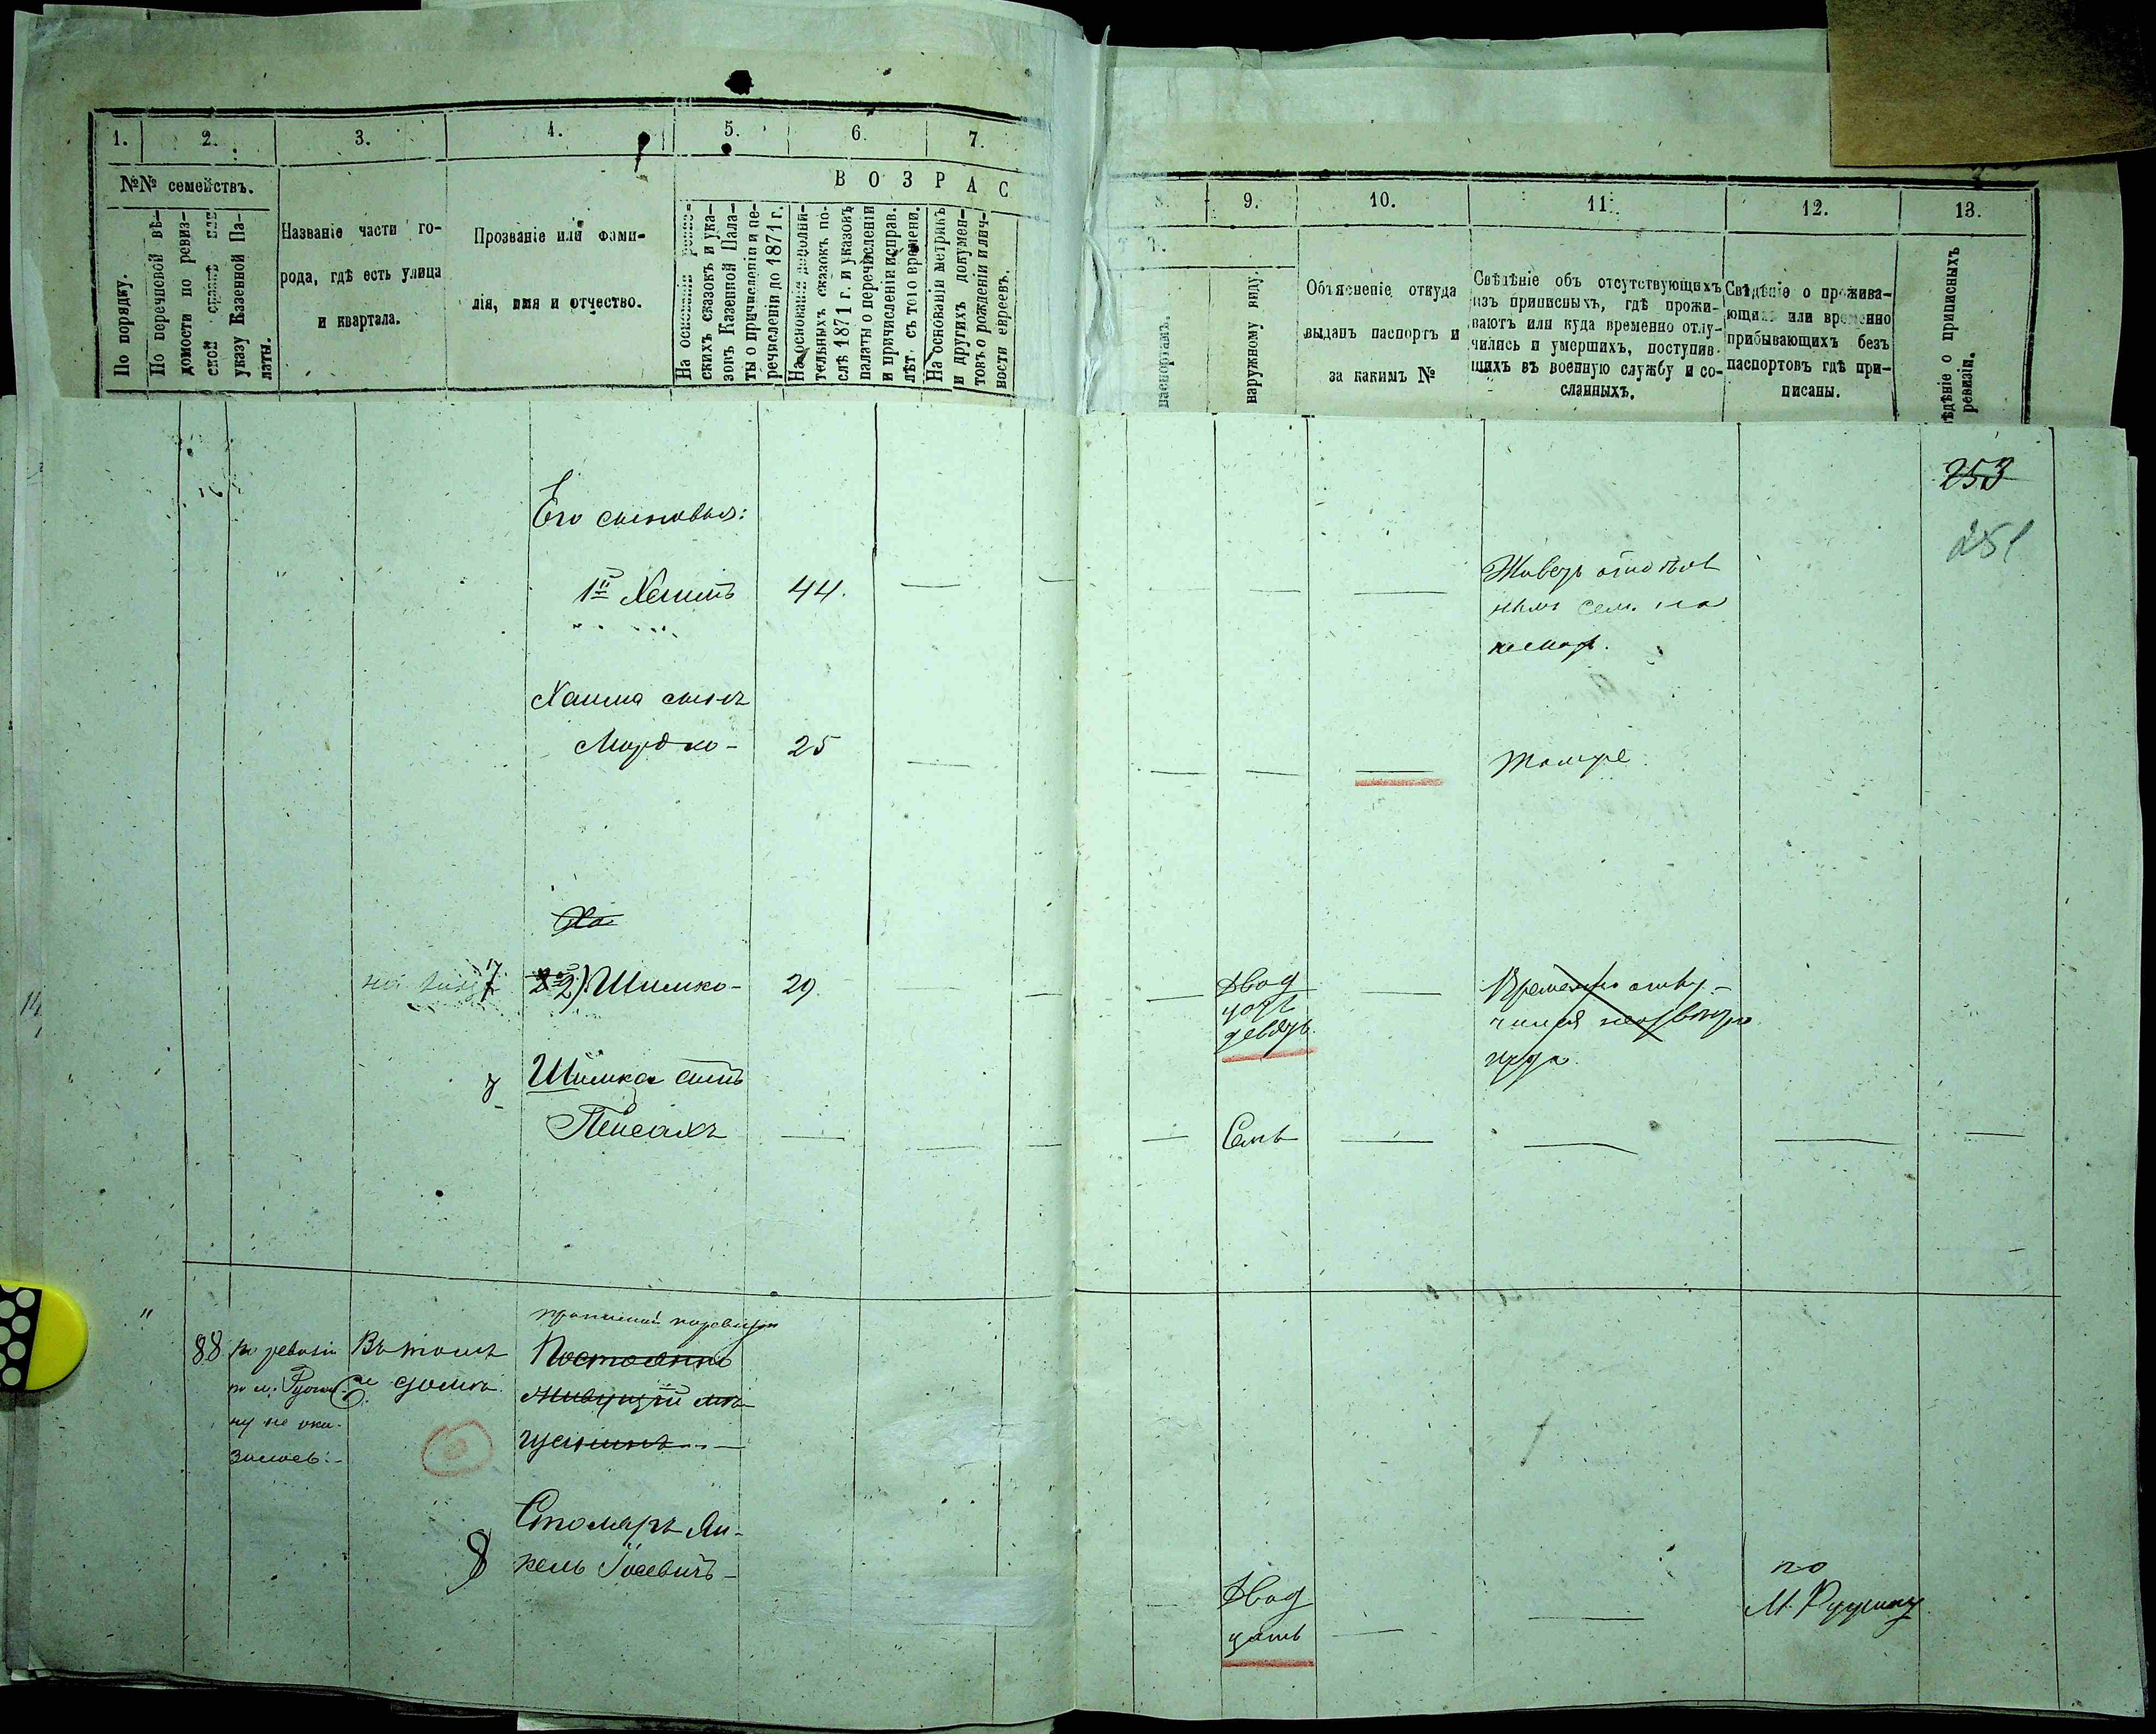 1. 2. 3. 4. 5. 6. 7.
№№ семействъ.
По порядку.
По перечневой вѣ-
домости по ревиз-
ской сказкѣ или
указу Казенной Па-
латы.
Названіе части го-
рода, гдѣ есть улица
и квартала.
Прозваніе или фами-
лія, имя и отчество.
ВОЗРАС
На основаніи ревиз-
скихъ сказокъ и ука-
зовъ Казенной Пала-
ты о причисленіи и пе-
речисленіи до 1871 г.
На основаніи дополни-
тельныхъ сказокъ по-
слѣ 1871 г. и указовъ
палаты о перечисленіи
и причисленіи исправ.
лѣт. съ того времени.
На основаніи метрикъ
и другихъ докумен-
товъ о рожденіи и лич-
ности евреевъ.
8. 9. 10. 11. 12. 13.
Т.
паспортамъ.
наружному виду.
Объясненіе откуда
выданъ паспортъ и
за какимъ №
Свѣдѣніе объ отсутствующихъ
изъ приписныхъ, гдѣ прожи-
ваютъ или куда временно отлу-
чились и умершихъ, поступив-
шихъ въ военную службу и со-
сланныхъ.
Свѣдѣніе о прожива-
ющихъ или временно
прибывающихъ безъ
паспортовъ гдѣ при-
писаны.
ѣдѣніе о приписныхъ
ревизіи.
253
251
Его сыновья:
1й Хаимъ 44.
Живетъ
сем.
Хаима сынъ
Мордко - 25
тоже
Ха
7 2) Шимко - 29.
Двад
цать
девять
Временно отлу-
чился
7 Шимка сынъ
Пейсахъ
Семь
88 По ревизіи
по м.
ну не ока-
залось:-
Въ томъ
же домѣ.
Постоянно
живущій мѣ-
щанинъ
Столяръ Ян-
8 кель Іосевичъ -
Двад
цать
по
М. Ружину